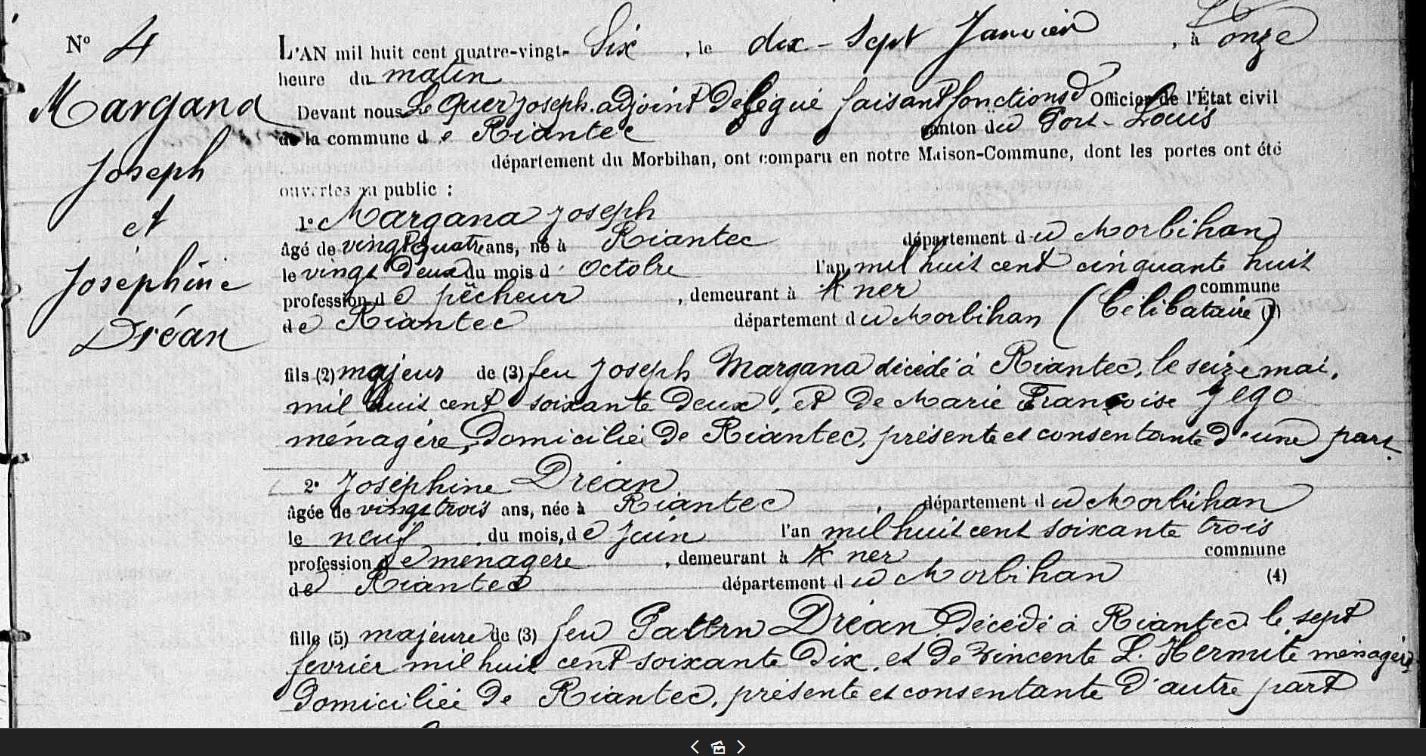 N° 4
Margana
Joseph
et
Joséphine
Dréan
L'AN mil huit cent quatre-vingt- Six , le dix-sept Janvier , à onze
heure du matin
Devant nous Le Quer Joseph adjoint Délégué faisant fonctions d' Officier de l'État civil
de la commune d e Riantec canton de Port-Louis
département du Morbihan, ont comparu en notre Maison-Commune, dont les portes ont été
ouvertes au public :
1° Margana Joseph
âgé de vingt quatre ans, né à Riantec département d u Morbihan
le vingt deux du mois d' Octobre l'an mil huit cent cinquante huit
profession d e pêcheur , demeurant à Kner commune
de Riantec département d u Morbihan (Célibataire (1)
fils (2) majeur de (3) feu Joseph Margana décédé à Riantec, le seize mai,
mil huit cent soixante deux, et de Marie Françoise Jégo
ménagère, Domiciliée de Riantec, présente et consentante d'une part.
2° Joséphine Dréan
âgée de vingt trois ans, née à Riantec département d u Morbihan
le neuf du mois de Juin l'an mil huit cent soixante trois
profession de ménagère , demeurant à Kner commune
de Riantec département d u Morbihan (4)
fille (5) majeure de (3) feu Patern Dréan Décédé à Riantec le sept
février mil huit cent soixante dix, et de Vincente L'Hermite ménagère
Domiciliée de Riantec, présente et consentante d'autre part